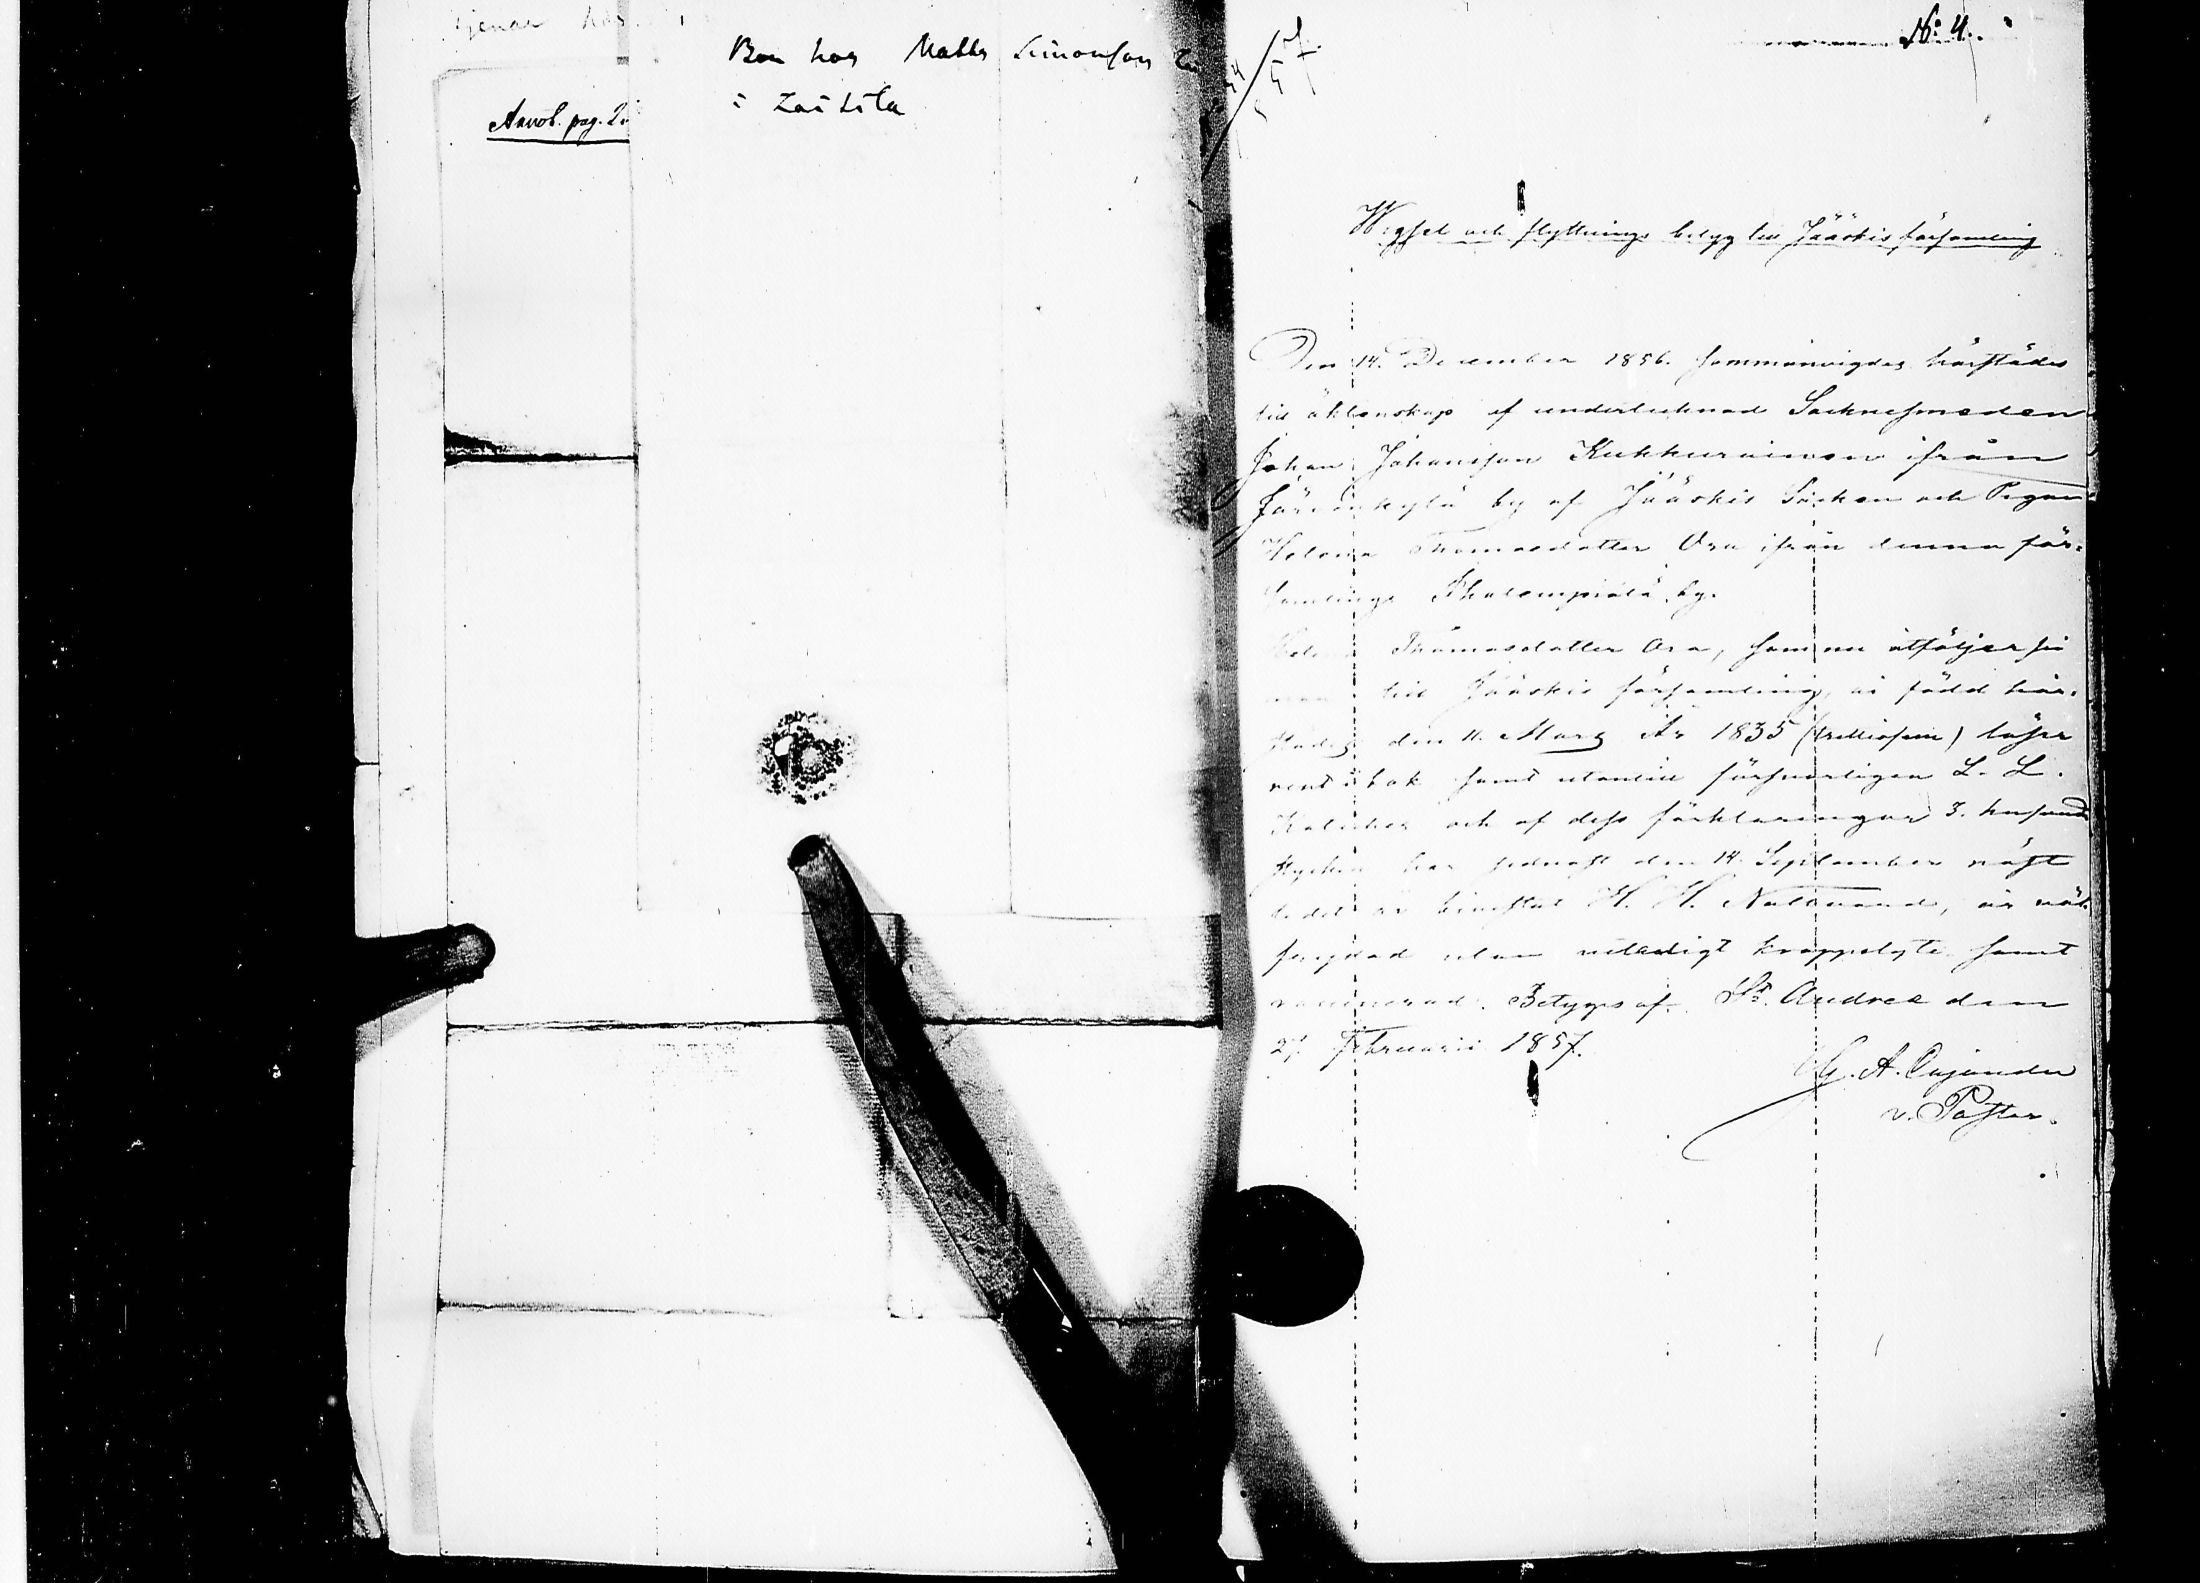 tjenar hos
Bor hos Matts Simonson
i Laitila
Annot. pag. 2
No: 4.
Wigsel och flyttnings betyg till Jääskis församling
Den 14. December 1856. sammanvigdes härstädes
till äktenskap af undertecknad Socknesmeden
Johan Johansson Kukkurainen ifrån
Järvenkylä by af Jääskis Socken och Pigan
Helena Thomasdotter Ora ifrån denna för-
samlings by.
Helena Thomasdotter Ora, som nu åtföljer sin
man till Jääskis församling, är född här-
städes den 11. Mars År 1835 (trettiofem) läser
rent i bok samt utantill försvarligen L. L.
Kateches och af dess förklaringar 3. hufvud
stycken har sednast den 14. September näst
ledet år bivistat H. H. Nattvard, är välfrejdad utan veterligt kroppslyte samt
vaccinerad. Betygas af. St. Andree den
27 Februarii 1857.
G. A. Cajander
v. Pastor.